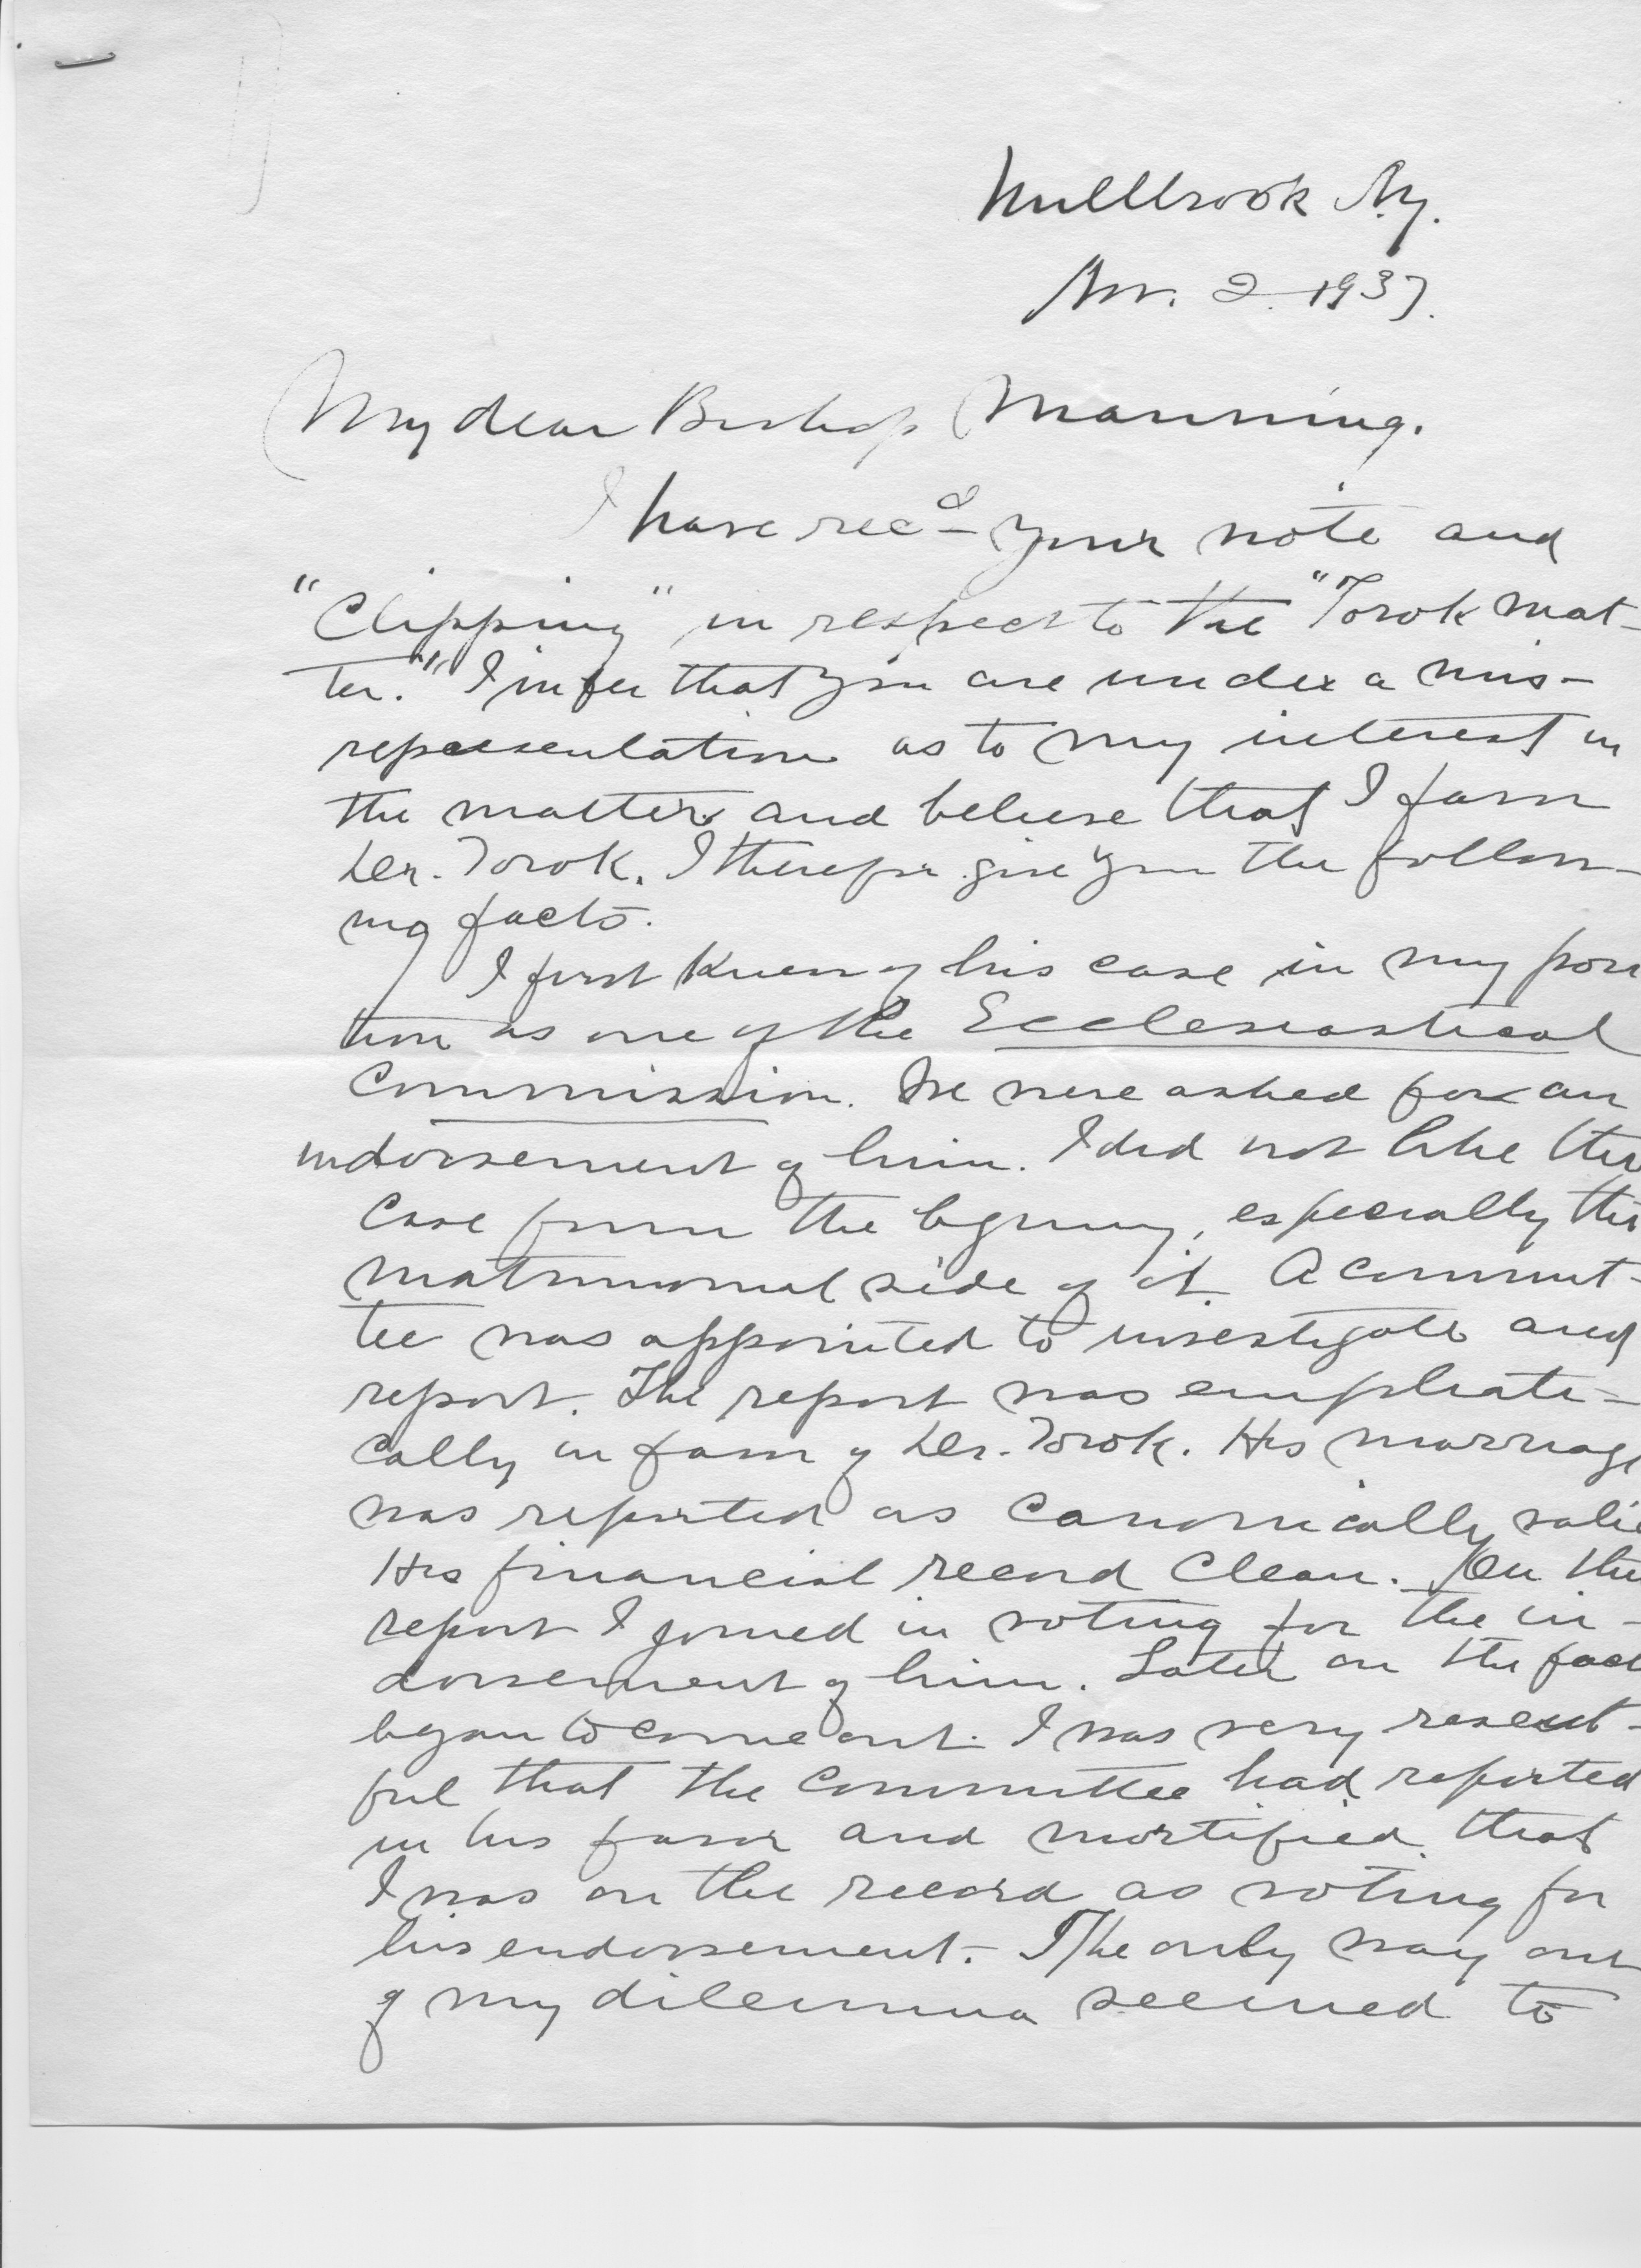 Millbrook N.Y.
Nov. 2. 1937.
My dear Bishop Manning.
I have rec^d your note and
"Clipping" in respect to the "Torok mat-
ter." I infer that you are under a mis-
representation as to my interest in
the matter and believe that I favor
Dr. Torok. I therefor give you the follow-
ing facts.
I first knew of his case in my posi
tion as one of the Ecclesiastical
Commission. We were asked for an
indorsement of him. I did not like the
case from the begining, especially the
matrimonial side of it. A commit-
tee was appointed to investigate and
report. The report was emphati-
cally in favor of Dr. Torok. His marriage
was reported as canonically valid
His financial record clean. On the
report I joined in voting for the in-
dorsement of him. Later on the fact
began to come out. I was very resent-
ful that the committee had reported
in his favor and mortified that
I was on the record as voting for
his endorsement. The only way out
of my dilemma seemed to